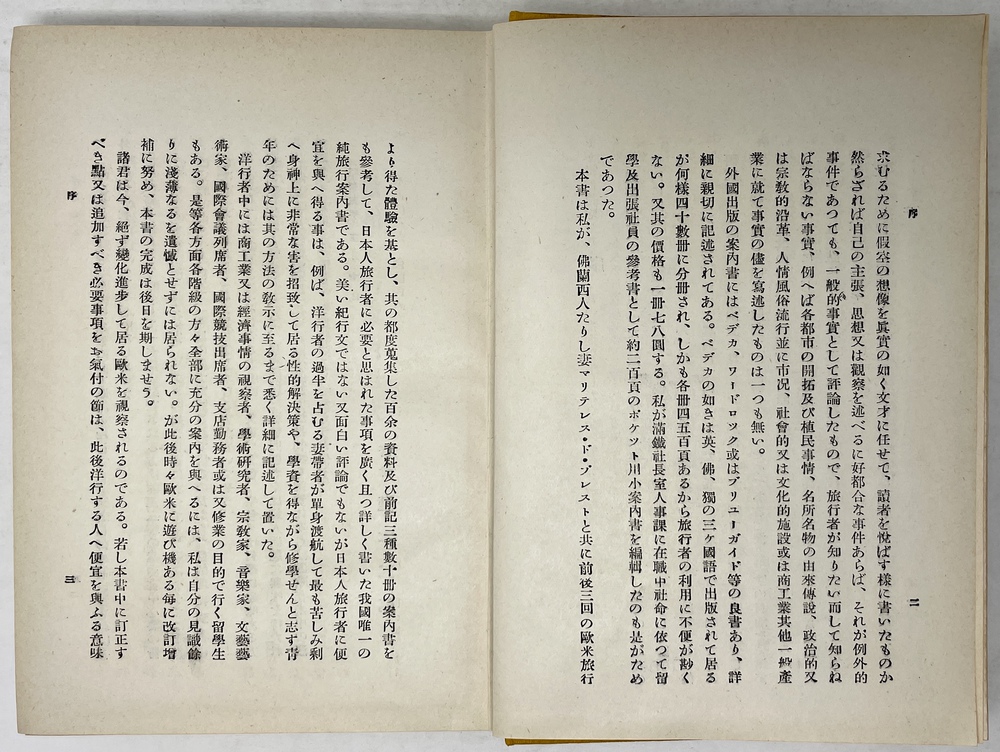 序
二
求むるために假空の想像を眞實の如く文才に任せて、讀者を悅ばす樣に書いたものか
然らざれば自己の主張、思想又は觀察を述べるに好都合な事件あらば、それが例外的
事件であつても、一般的事實として評論したもので、旅行者が知りたい而して知らね
ばならない事實、例へば各都市の開拓及び植民事情、名所名物の由來傳說、政治的又
は宗敎的沿革、人情風俗流行並に市况、社會的又は文化的施設或は商工業其他一般產
業に就て事實の儘を寫述したものは一つも無い。
外國出版の案內書にはベデカ、ワードロック或はブリューガイド等の良書あり、詳
細に親切に記述されてある。ベデカの如きは英、佛、獨の三ケ國語で出版されて居る
が何樣四十數册に分册され、しかも各册四五百頁あるから旅行者の利用に不便が尠く
ない。又其の價格も一册七八圓する。私が滿鐵社長室人事課に在職中社命に依つて留
學及出張社員の參考書として約二百頁のポケット川小案內書を編輯したのも是がため
であつた。
本書は私が、佛蘭西人たりし妻マリテレス・ド・プレストと共に前後三回の歐米旅行
より得た體驗を基とし、其の都度蒐集した百余の資料及び前記三種數十册の案內書を
も參考して、日本人旅行者に必要と思はれた事項を廣く且つ詳しく書いた我國唯一の
純旅行案內書である。美い紀行文ではない又面白い評論でもないが日本人旅行者に便
宜を與へ得る事は、例ば、洋行者の過半を占むる妻帶者が單身渡航して最も苦しみ剩
へ身神上に非常な害を招致して居る性的解決策や、學資を得ながら修學せんと志す靑
年のためには其の方法の敎示に至るまで悉く詳細に記述して置いた。
洋行者中には商工業又は經濟事情の視察者、學術硏究者、宗敎家、音樂家、文藝藝
術家、國際會議列席者、國際競技出席者、支店勤務者或は又修業の目的で行く留學生
もある。是等各方面各階級の方々全部に充分の案內を與へるには、私は自分の見識餘
りに淺薄なるを遺憾とせずには居られない。が此後時々歐米に遊び機ある每に改訂增
補に努め、本書の完成は後日を期しませう。
諸君は今、絕ず變化進步して居る歐米を視察されるのである。若し本書中に訂正す
べき點又は追加すべき必要事項をお氣付の節は、此後洋行する人へ便宜を與ふる意味
序
三